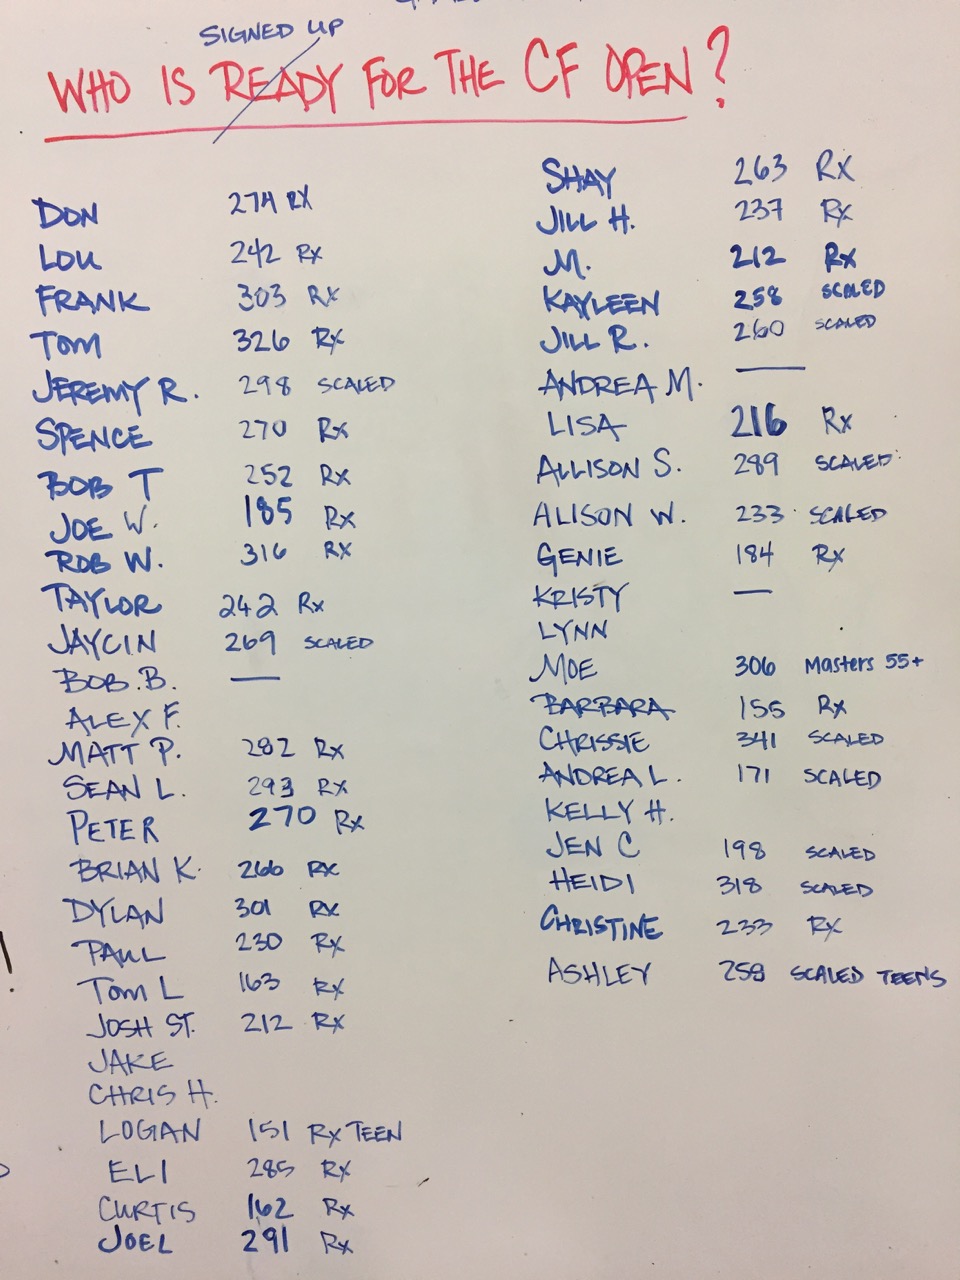 SIGNED UP
WHO IS READY FOR THE CF OPEN?
DON 274 RX
LOU 242 Rx
FRANK 303 Rx
TOM 326 Rx
JEREMY R. 298 SCALED
SPENCE 270 Rx
BOB T 252 Rx
JOE W. 185 Rx
ROB W. 316 Rx
TAYLOR 242 Rx
JAYCIN 269 SCALED
BOB.B. —
ALEX F.
MATT P. 282 Rx
SEAN L. 293 Rx
PETER 270 Rx
BRIAN K. 266 RX
DYLAN 301 Rx
PAUL 230 Rx
TOM L 163 Rx
JOSH ST. 212 Rx
JAKE
CHRIS H.
LOGAN 151 Rx TEEN
ELI 285 Rx
CURTIS 162 Rx
JOEL 291 Rx
SHAY 263 Rx
JILL H. 237 Rx
M. 212 Rx
KAYLEEN 258 SCALED
JILL R. 260 SCALED
ANDREA M. —
LISA 216 Rx
ALLISON S. 289 SCALED
ALISON W. 233 SCALED
GENIE 184 Rx
KRISTY —
LYNN
MOE 306 Masters 55+
BARBARA 155 Rx
CHRISSIE 341 SCALED
ANDREA L. 171 SCALED
KELLY H.
JEN C 198 SCALED
HEIDI 318 SCALED
CHRISTINE 233 Rx
ASHLEY 258 SCALED TEENS